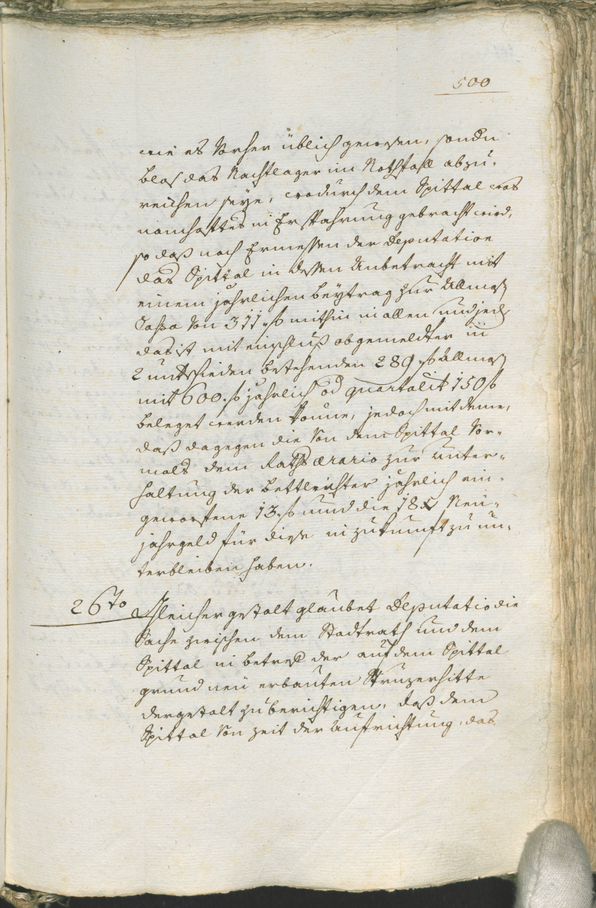 500
wie es vorher üblich gewesen, sondn
blos das Nachtlager im Nothfall abzu-
reichen seye, wodurch dem Spittal was
namhaftes in Erspahrung gebracht wird,
so daß nach Ermessen der Deputation
das Spittal in dessen Anbetracht mit
einem jährlichen Beytrag zur Allmos
Cassa von 311 f mithin in allen und jed
das ist mit einschluß obgemeldter in
2 bestehenden 289 f Allmos
mit 600 f jährlich od quartalit 150 f
beleget werden könne, jedoch mit deme,
daß dagegen die von dem Spittal vor-
mals dem Raths Ærario zur unter-
haltung der Bettlrichter jährlich ein-
geworfene 13 f und die 18 x Neu-
jahrgeld für diese in zukunft zu un-
terbleiben haben.
26to Gleichergestalt glaubet Deputatio die
Sache zwischen dem Stadtrath und dem
Spittal in betref der auf dem Spittal
grund neu erbauten
dergestalt zu berichtigen, daß dem
Spittal von zeit der Aufrichtung das